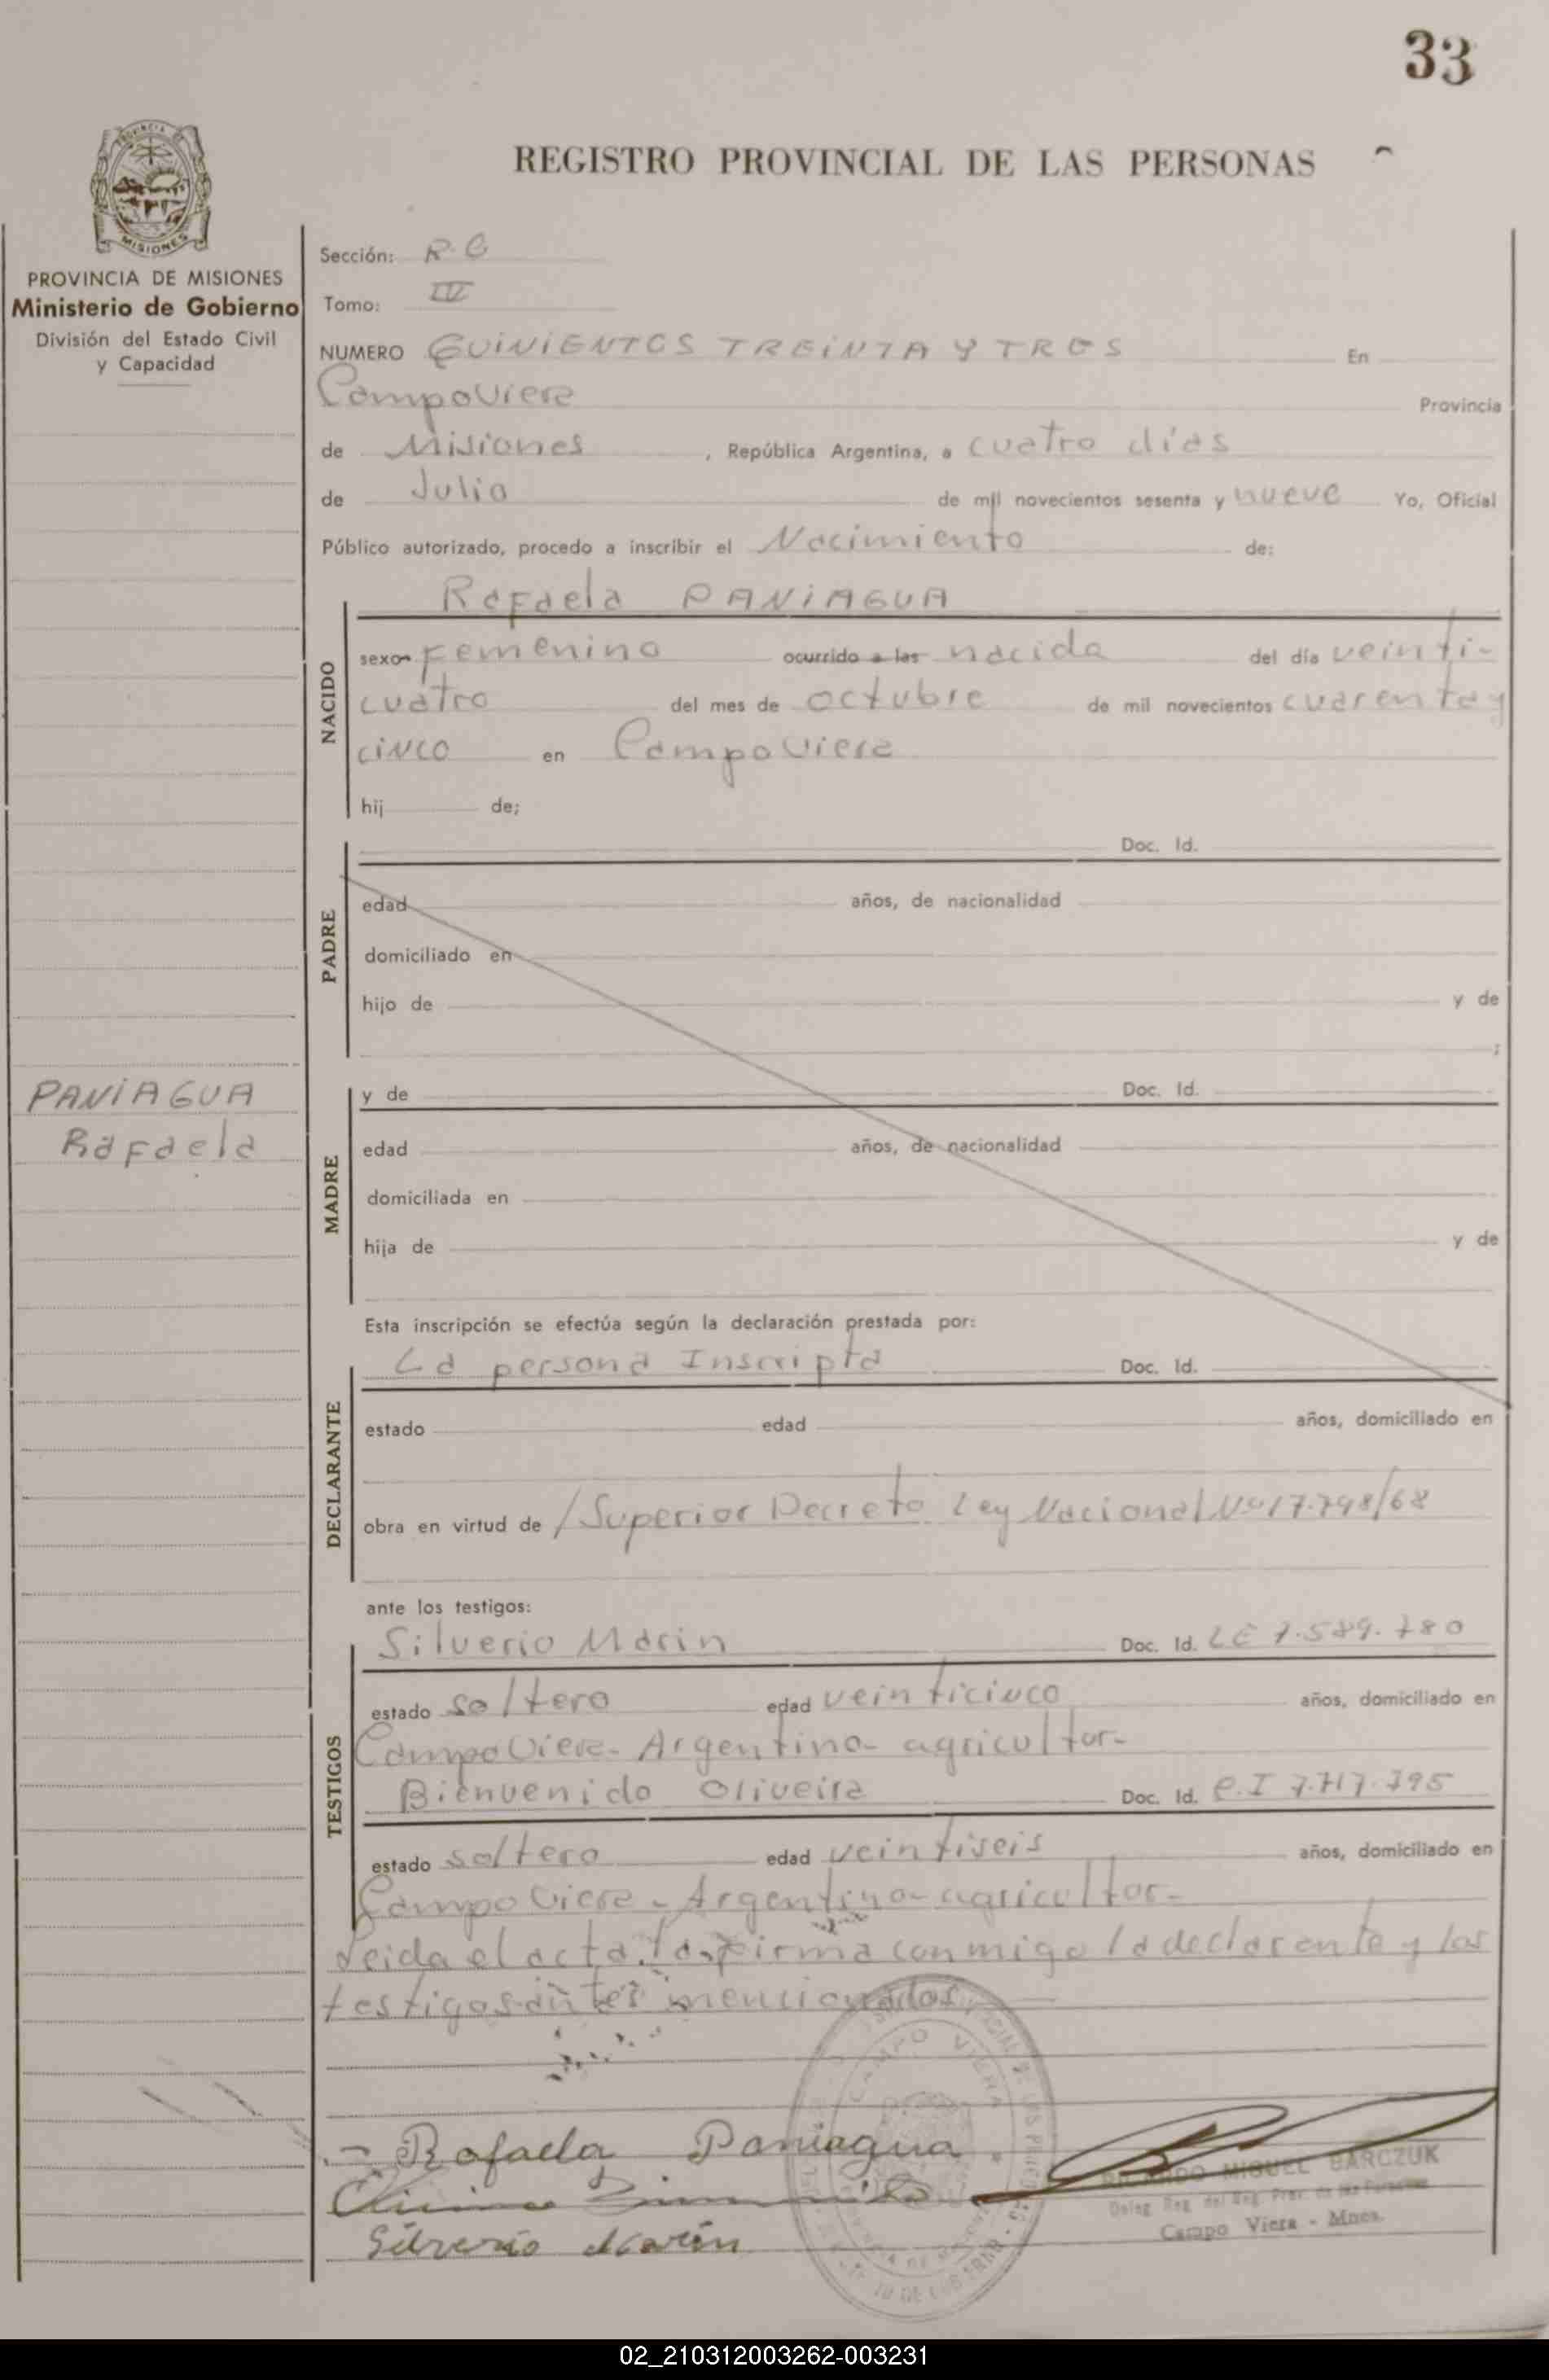 33
REGISTRO PROVINCIAL DE LAS PERSONAS
PROVINCIA DE MISIONES
Ministerio de Gobierno
División del Estado Civil
y Capacidad
Sección: R.C
Tomo: IV
NUMERO QUINIENTOS TREINTA Y TRES En
Campo Viera Provincia
de Misiones , República Argentina, a cuatro días
de Julio de mil novecientos sesenta y nueve Yo, Oficial
Público autorizado, procedo a inscribir el Nacimiento de:
NACIDO
Rafaela PANIAGUA
sexo femenino ocurrido a las nacida del día veinti-
cuatro del mes de octubre de mil novecientos cuarenta y
cinco en Campo Viera
hij de;
PADRE
Doc. Id.
edad años, de nacionalidad
domiciliado en
hijo de y de
;
PANIAGUA
Rafaela
MADRE
y de Doc. Id.
edad años, de nacionalidad
domiciliada en
hija de y de
Esta inscripción se efectúa según la declaración prestada por:
DECLARANTE
La persona Inscripta Doc. Id.
estado edad años, domiciliado en
obra en virtud de /Superior Decreto Ley Nacional Nº 17.798/68
ante los testigos:
TESTIGOS
Silverio Marin Doc. Id. LE
estado soltero edad veinticinco años, domiciliado en
Campo Viera- Argentino- agricultor-
Bienvenido Oliveira Doc. Id. C.I
estado soltero edad veintiseis años, domiciliado en
Campo Viera - Argentino- agricultor-
Leida el acta, la firma conmigo la declarante y los
testigos antes mencionados
CAMPO VIERA
- Rafaela Paniagua
Silverio Marín
MIGUEL BARCZUK
Campo Viera - Mnes.
02_210312003262-003231